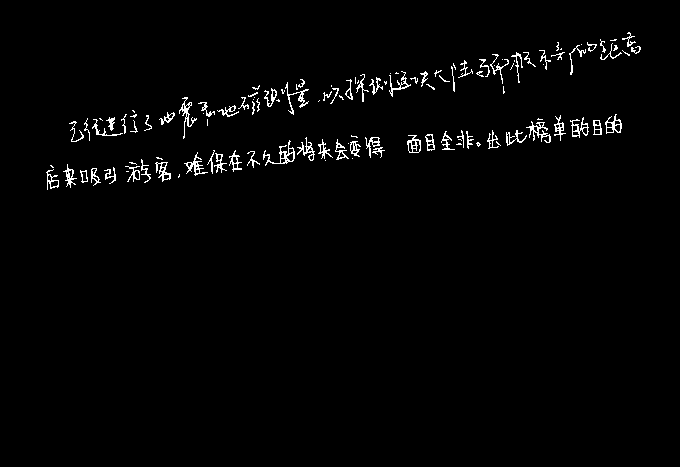 已经进行了地震和地磁测量,以探测这块大陆与印度的距离
店来吸引游客,难保在不久的将来会变得 面目全非。出此榜单的目的